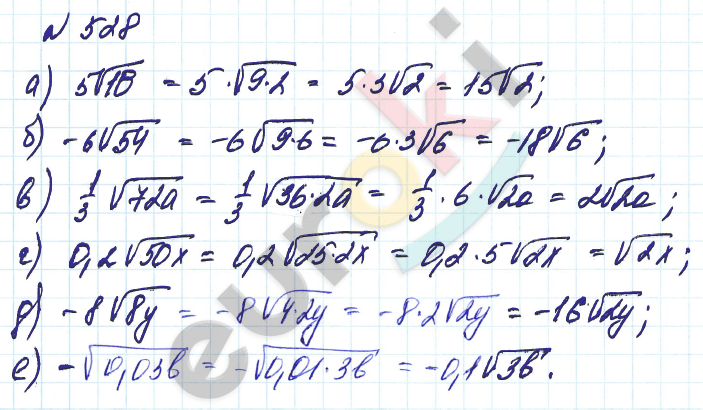 № 528
а) 5√18 = 5·√9·2 = 5·3√2 = 15√2;
б) -6√54 = -6√9·6 = -6·3√6 = -18√6;
в) 1/3 √72a = 1/3 √36·2a = 1/3 · 6 · √2a = 2√2a;
г) 0,2√50x = 0,2√25·2x = 0,2·5√2x = √2x;
д) -8√8y = -8√4·2y = -8·2√2y = -16√2y;
е) -√0,03в = -√0,01·3в = -0,1√3в.
euroki